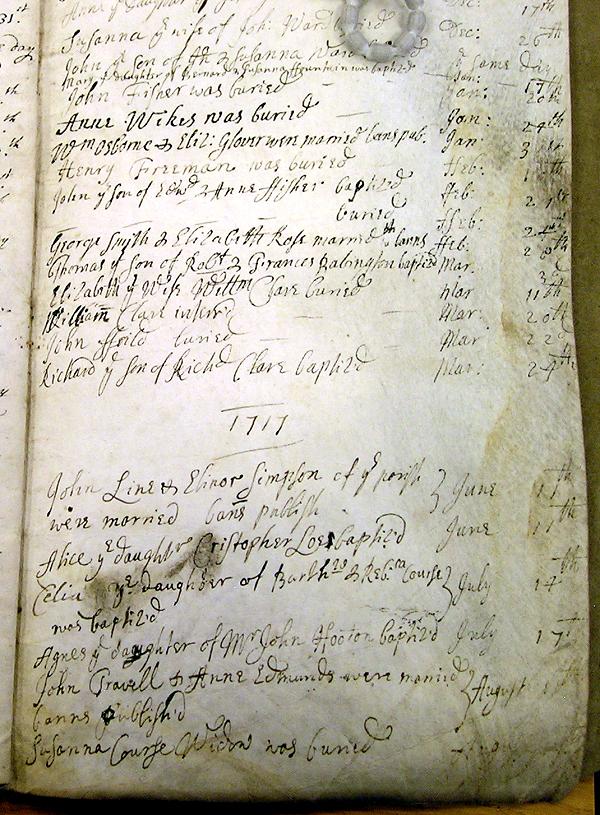 Anne ye Daughter Dec: 17th
Susanna ye wife of Joh: Ward buried Dec: 26th
John ye son of Jh & Susanna Ward ye same day
Mary ye daughter of Bernard & Susanna Hountain was baptiz'd Jan: 17th
John Fisher was buried Jan: 20th
Anne Wikes was buried Jan: 24th
Wm Osborne & Eliz: Glover were married bans pub. Jan 3
Henry Freeman was buried Feb: 1
John ye son of Edwd & Anne Fisher baptiz'd Feb: 21st
buried Feb: 24th
George Smyth & Elizabeth Rose married bans Feb: 26th
Thomas ye son of Robt & Frances Babington baptiz'd Mar. 3d
Elizabeth ye Wife Willm Clare buried Mar 11th
William Clare interr'd Mar: 20th
John ffoild buried Mar 22d
Richard ye son of Richd Clare baptiz'd Mar: 24th
1717
John Line & Elinor Simpson of ye parish June 17th
were married bans publish
Alice ye daughtr Cristopher Loes baptiz'd June 17th
Celia ye daughter of Barthw & Reb:ca Course July 14th
was baptiz'd
Agnes ye daughter of Mr John Hooton baptiz'd July 17th
John Travell & Anne Edmunds were married August
banns publish'd
Susanna Course Widow was buried